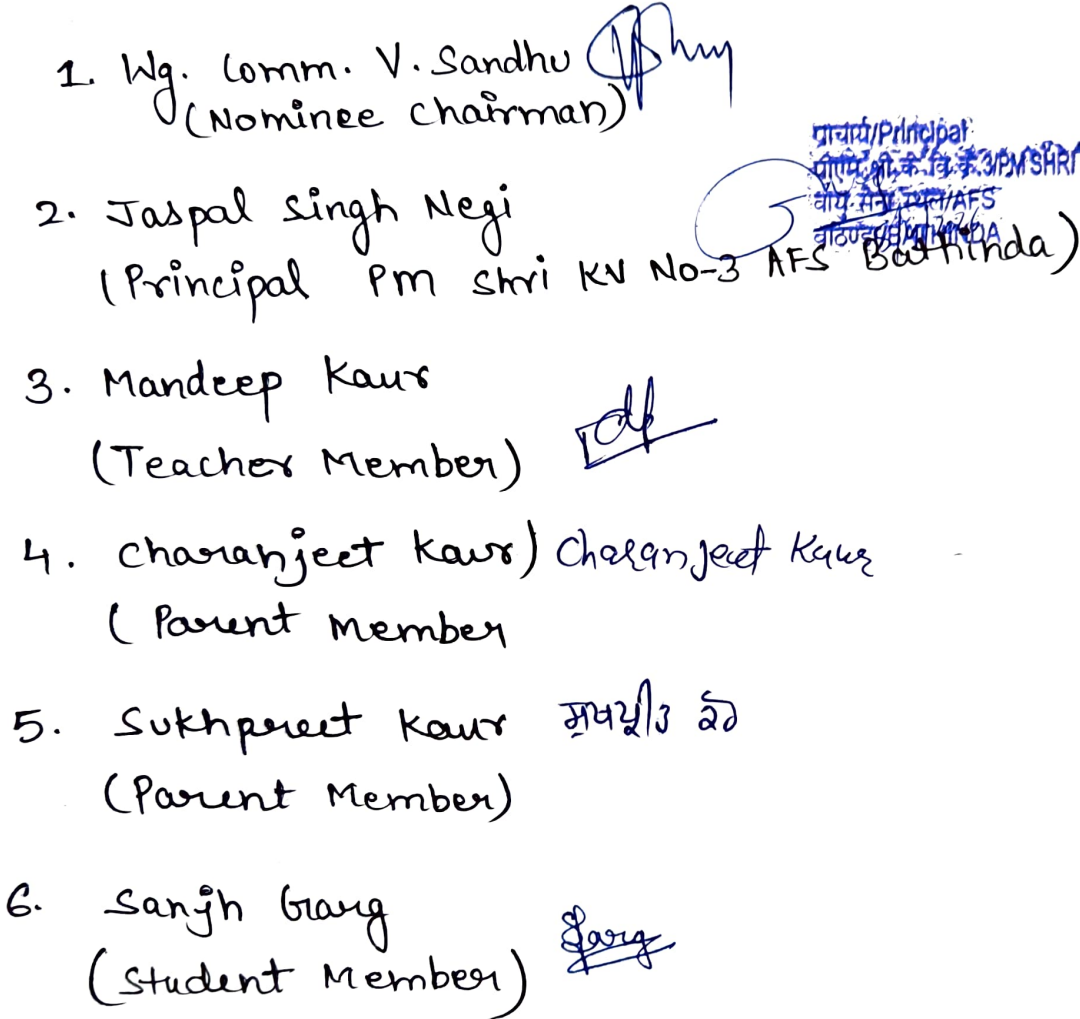 1. Wg. Comm. V. Sandhu
(Nominee Chairman)
प्राचार्य/Principal
पीएम श्री के. वि. क्र.3/PM SHRI
वायु सेना स्थल/AFS
2. Jaspal Singh Negi
(Principal Pm Shri KV No-3 AFS Bathinda)
3. Mandeep Kaur
(Teacher Member)
4. Charanjeet Kaur) Charanjeet Kaur
( Parent member
5. Sukhpreet Kaur ਸੁਖਪ੍ਰੀਤ ਕੌਰ
(Parent Member)
6. Sanjh Garg Garg
(Student Member)